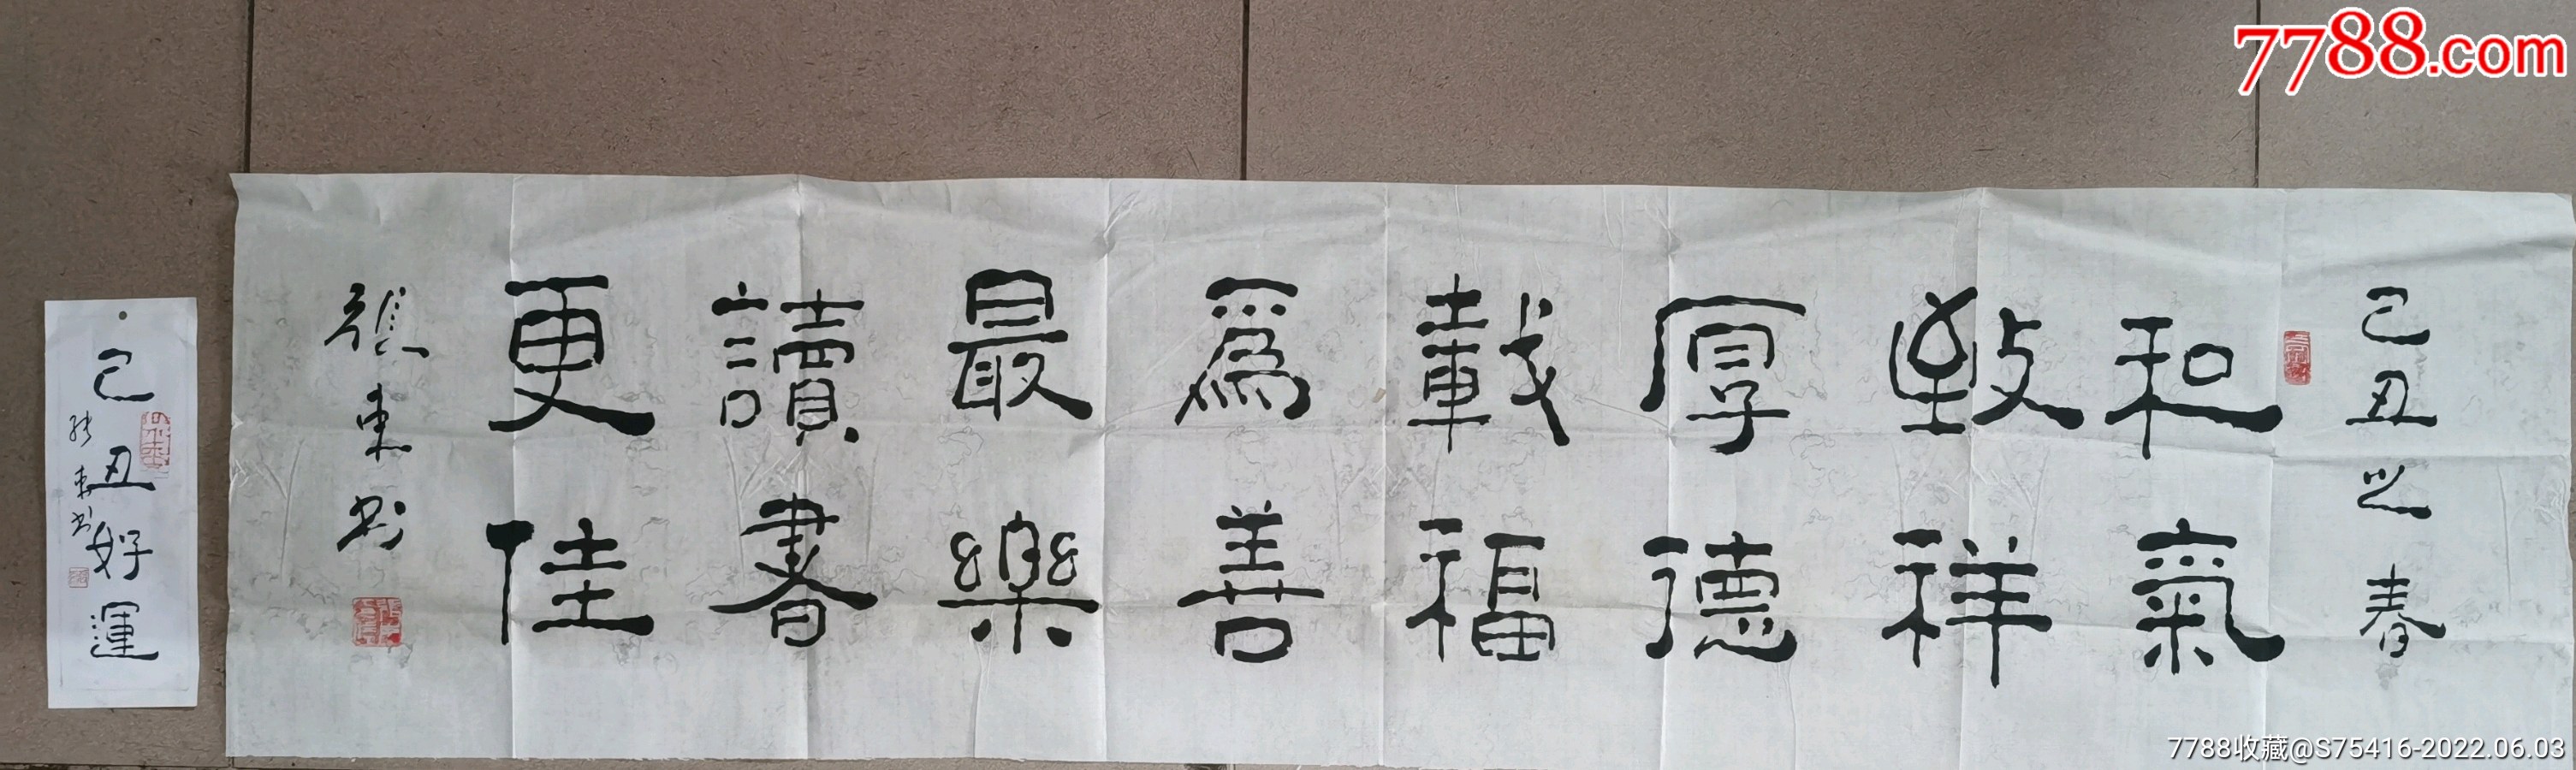 7788.com
己丑之春
和氣
致祥
厚德
載福
爲善
最樂
讀書
更佳
張東書
己丑好運
張東书
7788收藏@S75416-2022.06.03